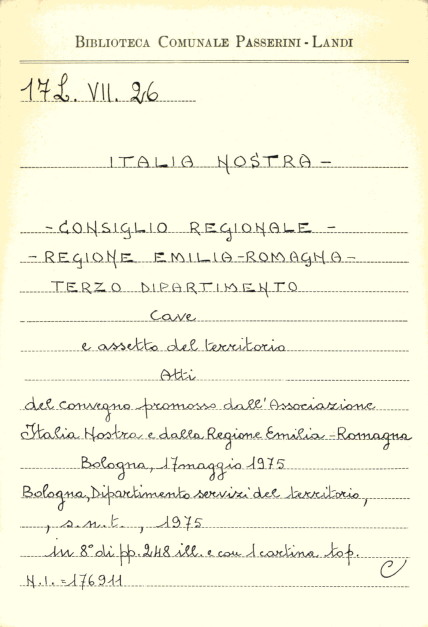 BIBLIOTECA COMUNALE PASSERINI - LANDI
17L. VII. 26
ITALIA NOSTRA -
- CONSIGLIO REGIONALE -
- REGIONE EMILIA-ROMAGNA -
TERZO DIPARTIMENTO
Cave
e assetto del territorio
Atti
del convegno promosso dall'Associazione
Italia Nostra e dalla Regione Emilia-Romagna
Bologna, 17 maggio 1975
Bologna, Dipartimento servizi del territorio,
, s.n.t. , 1975
in 8° di pp. 248 ill. e con 1 cartina top.
C
N.I. = 176911